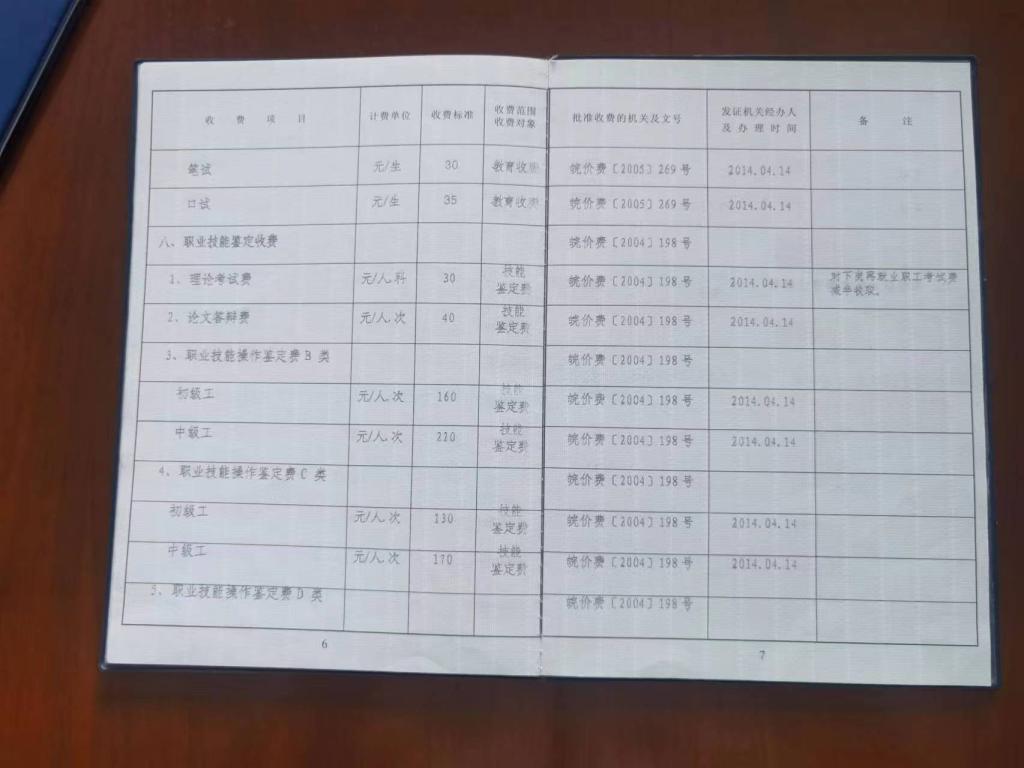 收 费 项 目 计费单位 收费标准 收费范围 收费对象 批准收费的机关及文号 发证机关经办人及办理时间 备 注
笔试 元/生 30 教育收费 皖价费〔2005〕269号 2014.04.14
口试 元/生 35 教育收费 皖价费〔2005〕269号 2014.04.14
八、职业技能鉴定收费 皖价费〔2004〕198号
1、理论考试费 元/人.科 30 技能鉴定费 皖价费〔2004〕198号 2014.04.14 对下岗再就业职工考试费减半收取。
2、论文答辩费 元/人.次 40 技能鉴定费 皖价费〔2004〕198号 2014.04.14
3、职业技能操作鉴定费B类 皖价费〔2004〕198号
初级工 元/人.次 160 技能鉴定费 皖价费〔2004〕198号 2014.04.14
中级工 元/人.次 220 技能鉴定费 皖价费〔2004〕198号 2014.04.14
4、职业技能操作鉴定费C类 皖价费〔2004〕198号
初级工 元/人.次 130 技能鉴定费 皖价费〔2004〕198号 2014.04.14
中级工 元/人.次 170 技能鉴定费 皖价费〔2004〕198号 2014.04.14
5、职业技能操作鉴定费D类 皖价费〔2004〕198号
6
7